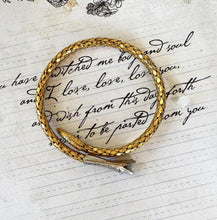 have bewitched me body and soul
and I love, love, love you.
and wish from this day forth
to be parted from you